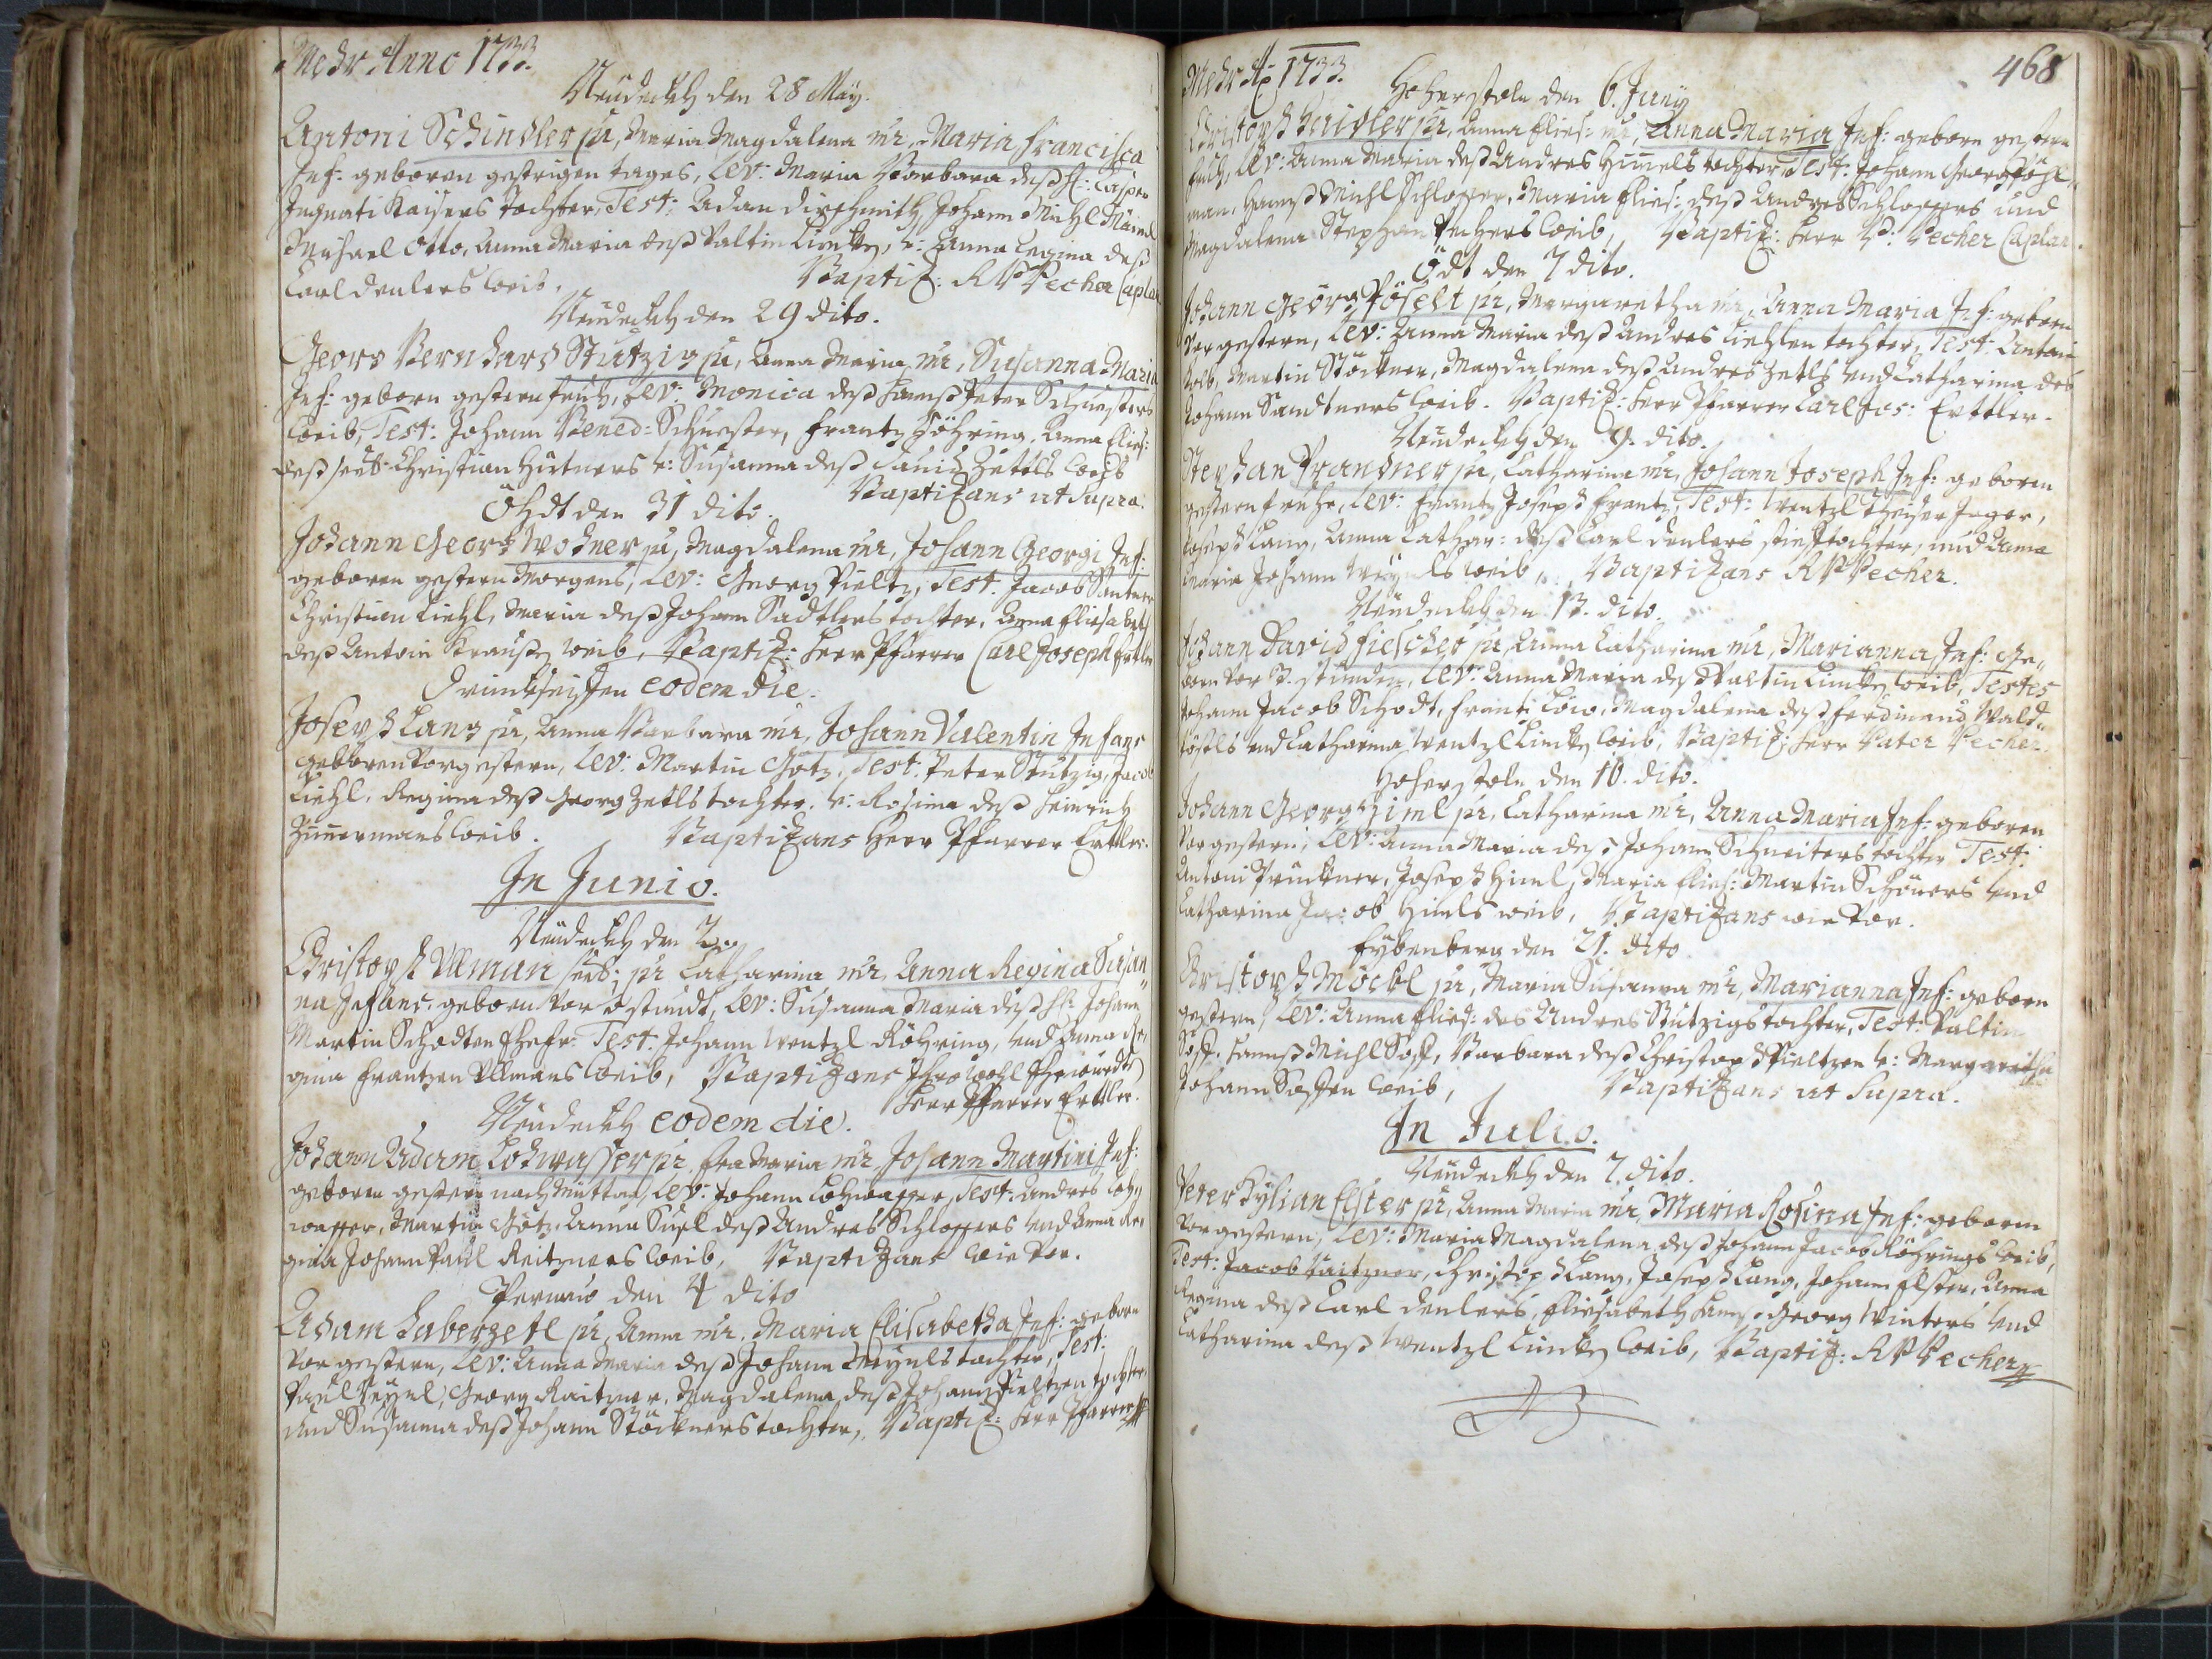 Mehr Anno 1733.
Neüdeckh den 28 May.
Antoni Schindler pr, Maria Magdalena mr, Maria Francisca
Inf: geboren gestrigen tages, Lev: Maria Barbara deß H: Caspar
Ignati Kaysers tochter, Test: Adam Johann Michl
Michael Otto, Anna Maria deß Valtin Lincken, v: Anna Regina deß
Carl Denlers weib. Baptiz: R P Pecher Caplan
Neüdeckh den 29 dito.
Georg Bernhard Stützig pr, Anna Maria mr, Susanna Maria
Inf: geborn gestern fruh, Lev: Monica deß Hannß Peter Schuesters
weib, Test: Johann Bened: Schuester, Frantz Röhring, Anna Elies:
deß Christian Hüttners v: Susanna deß David Zettls weib
Öhdt den 31 dito. Baptizans ut Supra.
Johann Georg Wohner pr, Magdalena mr, Johann Georgi Inf:
geboren gestern Morgens, Lev: Georg Pieltz, Test: Jacob Santner
Christian Liehl, Maria deß Johann Sadtlers tochter, Anna Elisabeth
deß Antoin Kraußen weib, Baptiz: Herr Pfarrer Carl Joseph Ertler
eodem die.
Joseph Lang pr, Anna Barbara mr, Johann Valentin Infans
geboren Vorgestern, Lev: Martin Götz, Test: Peter Stützig, Jacob
Liehl, Regina deß Georg Zetls tochter, v: Rosina deß Heinrich
Zimermans weib. Baptizans Herr Pfarrer Ertler.
In Junio.
Neüdeckh den 2
Christoph Ullman pr Catharina mr, Anna Regina Susan"
na Infans, geborn vor stundt, Lev: Susanna Maria deß H: Johann
Martin Schodten Ehefr: Test: Johann Wentzl Röhring, und Anna Re,
gina Frantzen Ullmans weib, Baptizans Ihro wohl Ehrwürdten
Herr Pfarrer Ertler.
Neüdeckh eodem die.
Johann Adam Lohwasser pr, Eva Maria mr, Johann Martini Inf:
geboren gestern nach Mittag, Lev: Johann Lohwasser, Test: Andres Loh,
wasser, Martin Götz, Anna Susl deß Andres Schlossers und Anna Re,
gina Johann Paul Reitzners weib, Baptizans wie Vor.
den 4 dito
Adam Haberzetl pr, Anna mr, Maria Elisabetha Inf: geborn
Vorgestern, Lev: Anna Maria deß Johann tochter, Test:
Paul Georg Raitzner, Magdalena deß Johann Pieltzen tochter,
und Susanna deß Johann Stöckners tochter, Baptiz: Herr Pfarrer
Mehr Ao 1733.
468
Hoherstoln den 6. Juny
Christoph pr, Anna Elies: mr, Anna Maria Inf: geborn gestern
fruh, Lev: Anna Maria deß Andres Himels tochter, Test: Johann Georg Pöhl"
man, Hannß Michl Schlosser, Maria Elies: deß Andres Schlossers und
Magdalena Stephan Pechers weib, Baptiz: Herr P: Pecher Caplan.
Ödt den 7 dito.
Johann Georg Pöselt pr, Margaretha mr, Anna Maria Inf: geborn
Vorgestern, Lev: Anna Maria deß Andres Liehlen tochter, Test: Antoni
Kolb, Martin Stöckner, Magdalena deß Andres Zetls und Catharina des
Johann Sandtners weib. Baptiz: Herr Pfarrer Carl Jos: Erttler.
Neüdeckh den 9. dito.
Stephan Prandner pr, Catharina mr, Johann Joseph Inf: geboren
gestern fruhe, Lev: Frantz Joseph Frantz, Test: Wentzl Jager,
Joseph Lang, Anna Cathar: deß Carl Denlers stieftochter, und Anna
Maria Johann weib, Baptizans R P Pecher.
Neüdeckh den 13. dito.
Johann David Fiescher pr, Anna Catharina mr, Marianna Inf: ge"
born vor stunden, Lev: Anna Maria deß Valtin Lincken weib, Testes
Johann Jacob Schodt, Frantz Löw, Magdalena deß Ferdinand Wald"
und Catharina Wentzl Lincken weib, Baptiz: Herr Pater Pecher.
Hoherstoln den 10. dito.
Johann Georg Himl pr, Catharina mr, Anna Maria Inf: geboren
Vorgestern, Lev: Anna Maria deß Johann Schneiters tochter Test:
Antoni Pruckner, Joseph Himl, Maria Elies: Martin Schöners und
Catharina Jacob Himls weib, Baptizans wie Vor.
Eybenberg den 21. dito
Christoph Möckl pr, Maria Susanna mr, Marianna Inf: geborn
gestern, Lev: Anna Elies: des Andres Stützigs tochter, Test: Valtin
Hannß Michl Barbara deß Christoph Pieltzen v: Margaretha
Johann weib, Baptizans ut Supra.
In Julio.
Neüdeckh den 7. dito.
Peter Kylian Elster pr, Anna Maria mr, Maria Rosina Inf: geboren
Vorgestern, Lev: Maria Magdalena deß Johann Jacob Röhrings weib,
Test: Jacob Raitzner, Christoph Lang, Joseph Lang, Johann Elster, Anna
Regina deß Carl Denlers, Eliesabeth Hannß Georg Winters und
Catharina deß Wentzl Lincken weib, Baptiz: R P Pecher